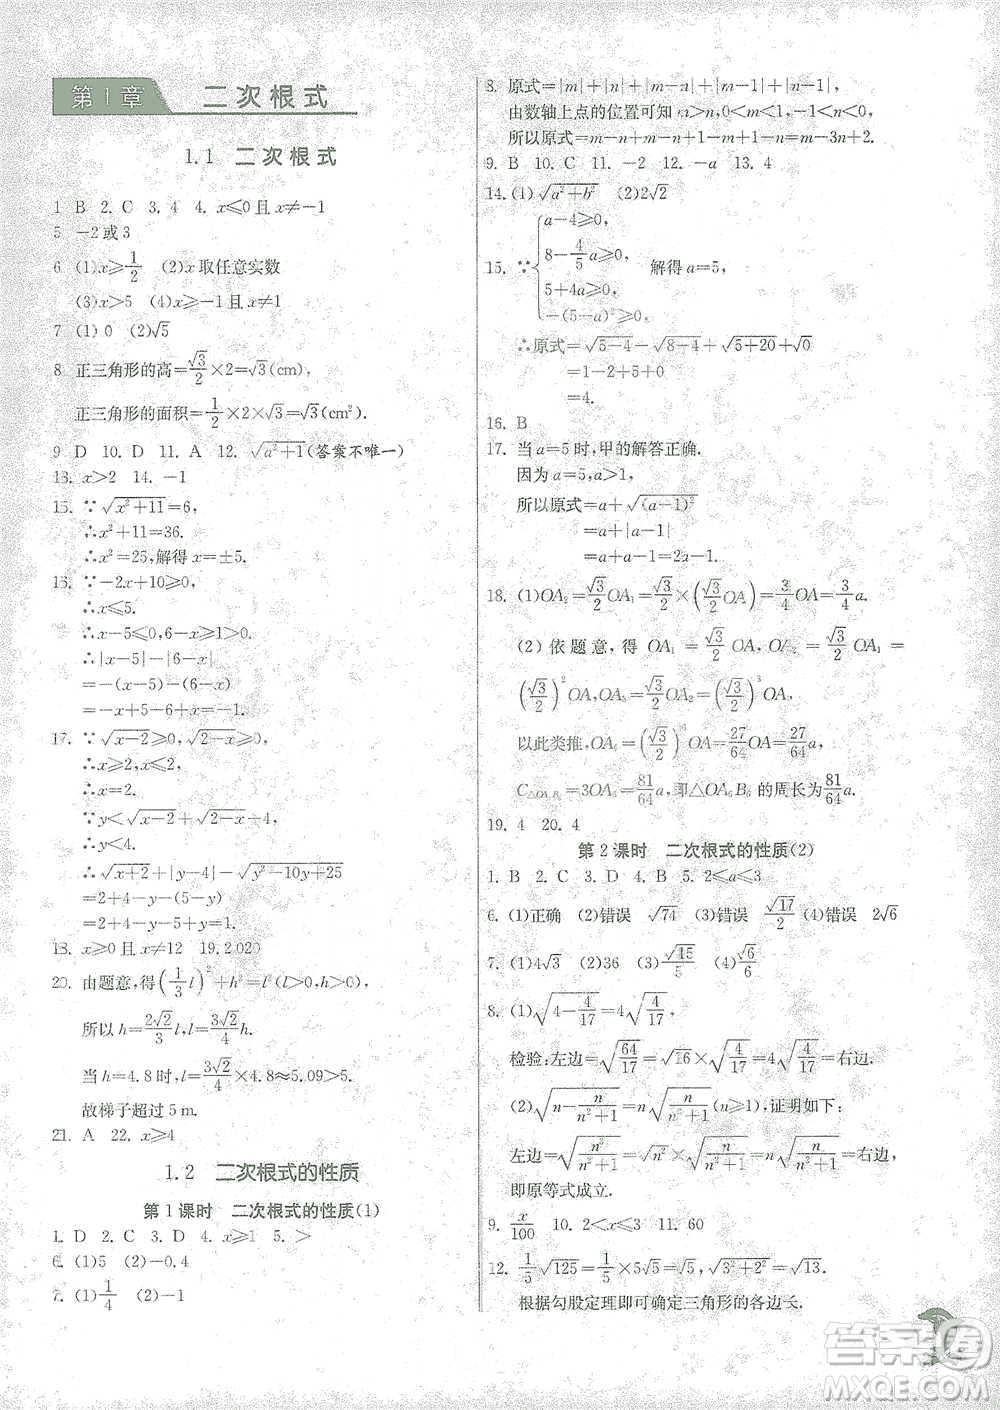 第1章 二次根式
1.1 二次根式
1 B 2. C 3. 4 4. x⩽0且x≠-1
5 -2或3
6 (1)x⩾1/2 (2)x取任意实数
(3)x>5 (4)x⩾-1且x≠1
7 (1)0 (2)√5
8 正三角形的高=√3/2×2=√3(cm),
正三角形的面积=1/2×2×√3=√3(cm²).
9 D 10. D 11. A 12. √(a²+1)(答案不唯一)
13. x>2 14. -1
15. ∵√(x²+11)=6,
∴x²+11=36.
∴x²=25,解得x=±5.
16. ∵-2x+10⩾0,
∴x⩽5.
∴x-5⩽0,6-x⩾1>0.
∴|x-5|-|6-x|
=-(x-5)-(6-x)
=-x+5-6+x=-1.
17. ∵√(x-2)⩾0,√(2-x)⩾0,
∴x⩾2,x⩽2.
∴x=2.
∵y<√(x-2)+√(2-x)+4,
∴y<4.
∴√(x+2)+|y-4|-√(y²-10y+25)
=2+4-y-(5-y)
=2+4-y-5+y=1.
18. x⩾0且x≠12 19. 2 020
20. 由题意,得(1/3 l)²+h²=l²(l>0,h>0),
所以h=2√2/3 l,l=3√2/4 h.
当h=4.8时,l=3√2/4×4.8≈5.09>5.
故梯子超过5 m.
21. A 22. x⩾4
1.2 二次根式的性质
第1课时 二次根式的性质(1)
1. D 2. C 3. D 4. x⩾1 5. >
6. (1)5 (2)-0.4
7. (1)1/4 (2)-1
8. 原式=|m|+|n|+|m-n|+|m-1|+|n-1|,
由数轴上点的位置可知m>n,0<m<1,-1<n<0,
所以原式=m-n+m-n+1-m+1-n=m-3n+2.
9. B 10. C 11. -2 12. -a 13. 4
14. (1)√(a²+b²) (2)2√2
15. ∵{a-4⩾0,
8-4/5 a⩾0,
5+4a⩾0,
-(5-a)²⩾0, 解得a=5,
∴原式=√(5-4)-√(8-4)+√(5+20)+√0
=1-2+5+0
=4.
16. B
17. 当a=5时,甲的解答正确.
因为a=5>1,
所以原式=a+√((a-1)²)
=a+|a-1|
=a+a-1=2a-1.
18. (1)OA₂=√3/2 OA₁=√3/2×(√3/2 OA)=3/4 OA=3/4 a.
(2)依题意,得OA₁=√3/2 OA,OA₂=√3/2 OA₁=
(√3/2)² OA,OA₃=√3/2 OA₂=(√3/2)³ OA,
以此类推,OA₆=(√3/2)⁶ OA=27/64 OA=27/64 a,
C△OA₆B₆=3OA₆=81/64 a,即△OA₆B₆的周长为81/64 a.
19. 4 20. 4
第2课时 二次根式的性质(2)
1. B 2. C 3. D 4. B 5. 2⩽a⩽3
6. (1)正确 (2)错误 √74 (3)错误 √17/2 (4)错误 2√6
7. (1)4√3 (2)36 (3)√15/5 (4)√6/6
8. (1)√(4-4/17)=4√(4/17),
检验:左边=√(64/17)=√16×√(4/17)=4√(4/17)=右边.
(2)√(n-n/(n²+1))=n√(n/(n²+1))(n⩾1),证明如下:
左边=√(n³/(n²+1))=√(n²)×√(n/(n²+1))=n√(n/(n²+1))=右边,
即原等式成立.
9. x/100 10. 2<x⩽3 11. 60
12. 1/5√125=1/5×5√5=√5,√52/2=2√13/2=√13.
根据勾股定理即可确定三角形的各边长.
答案圈
MXQE.COM